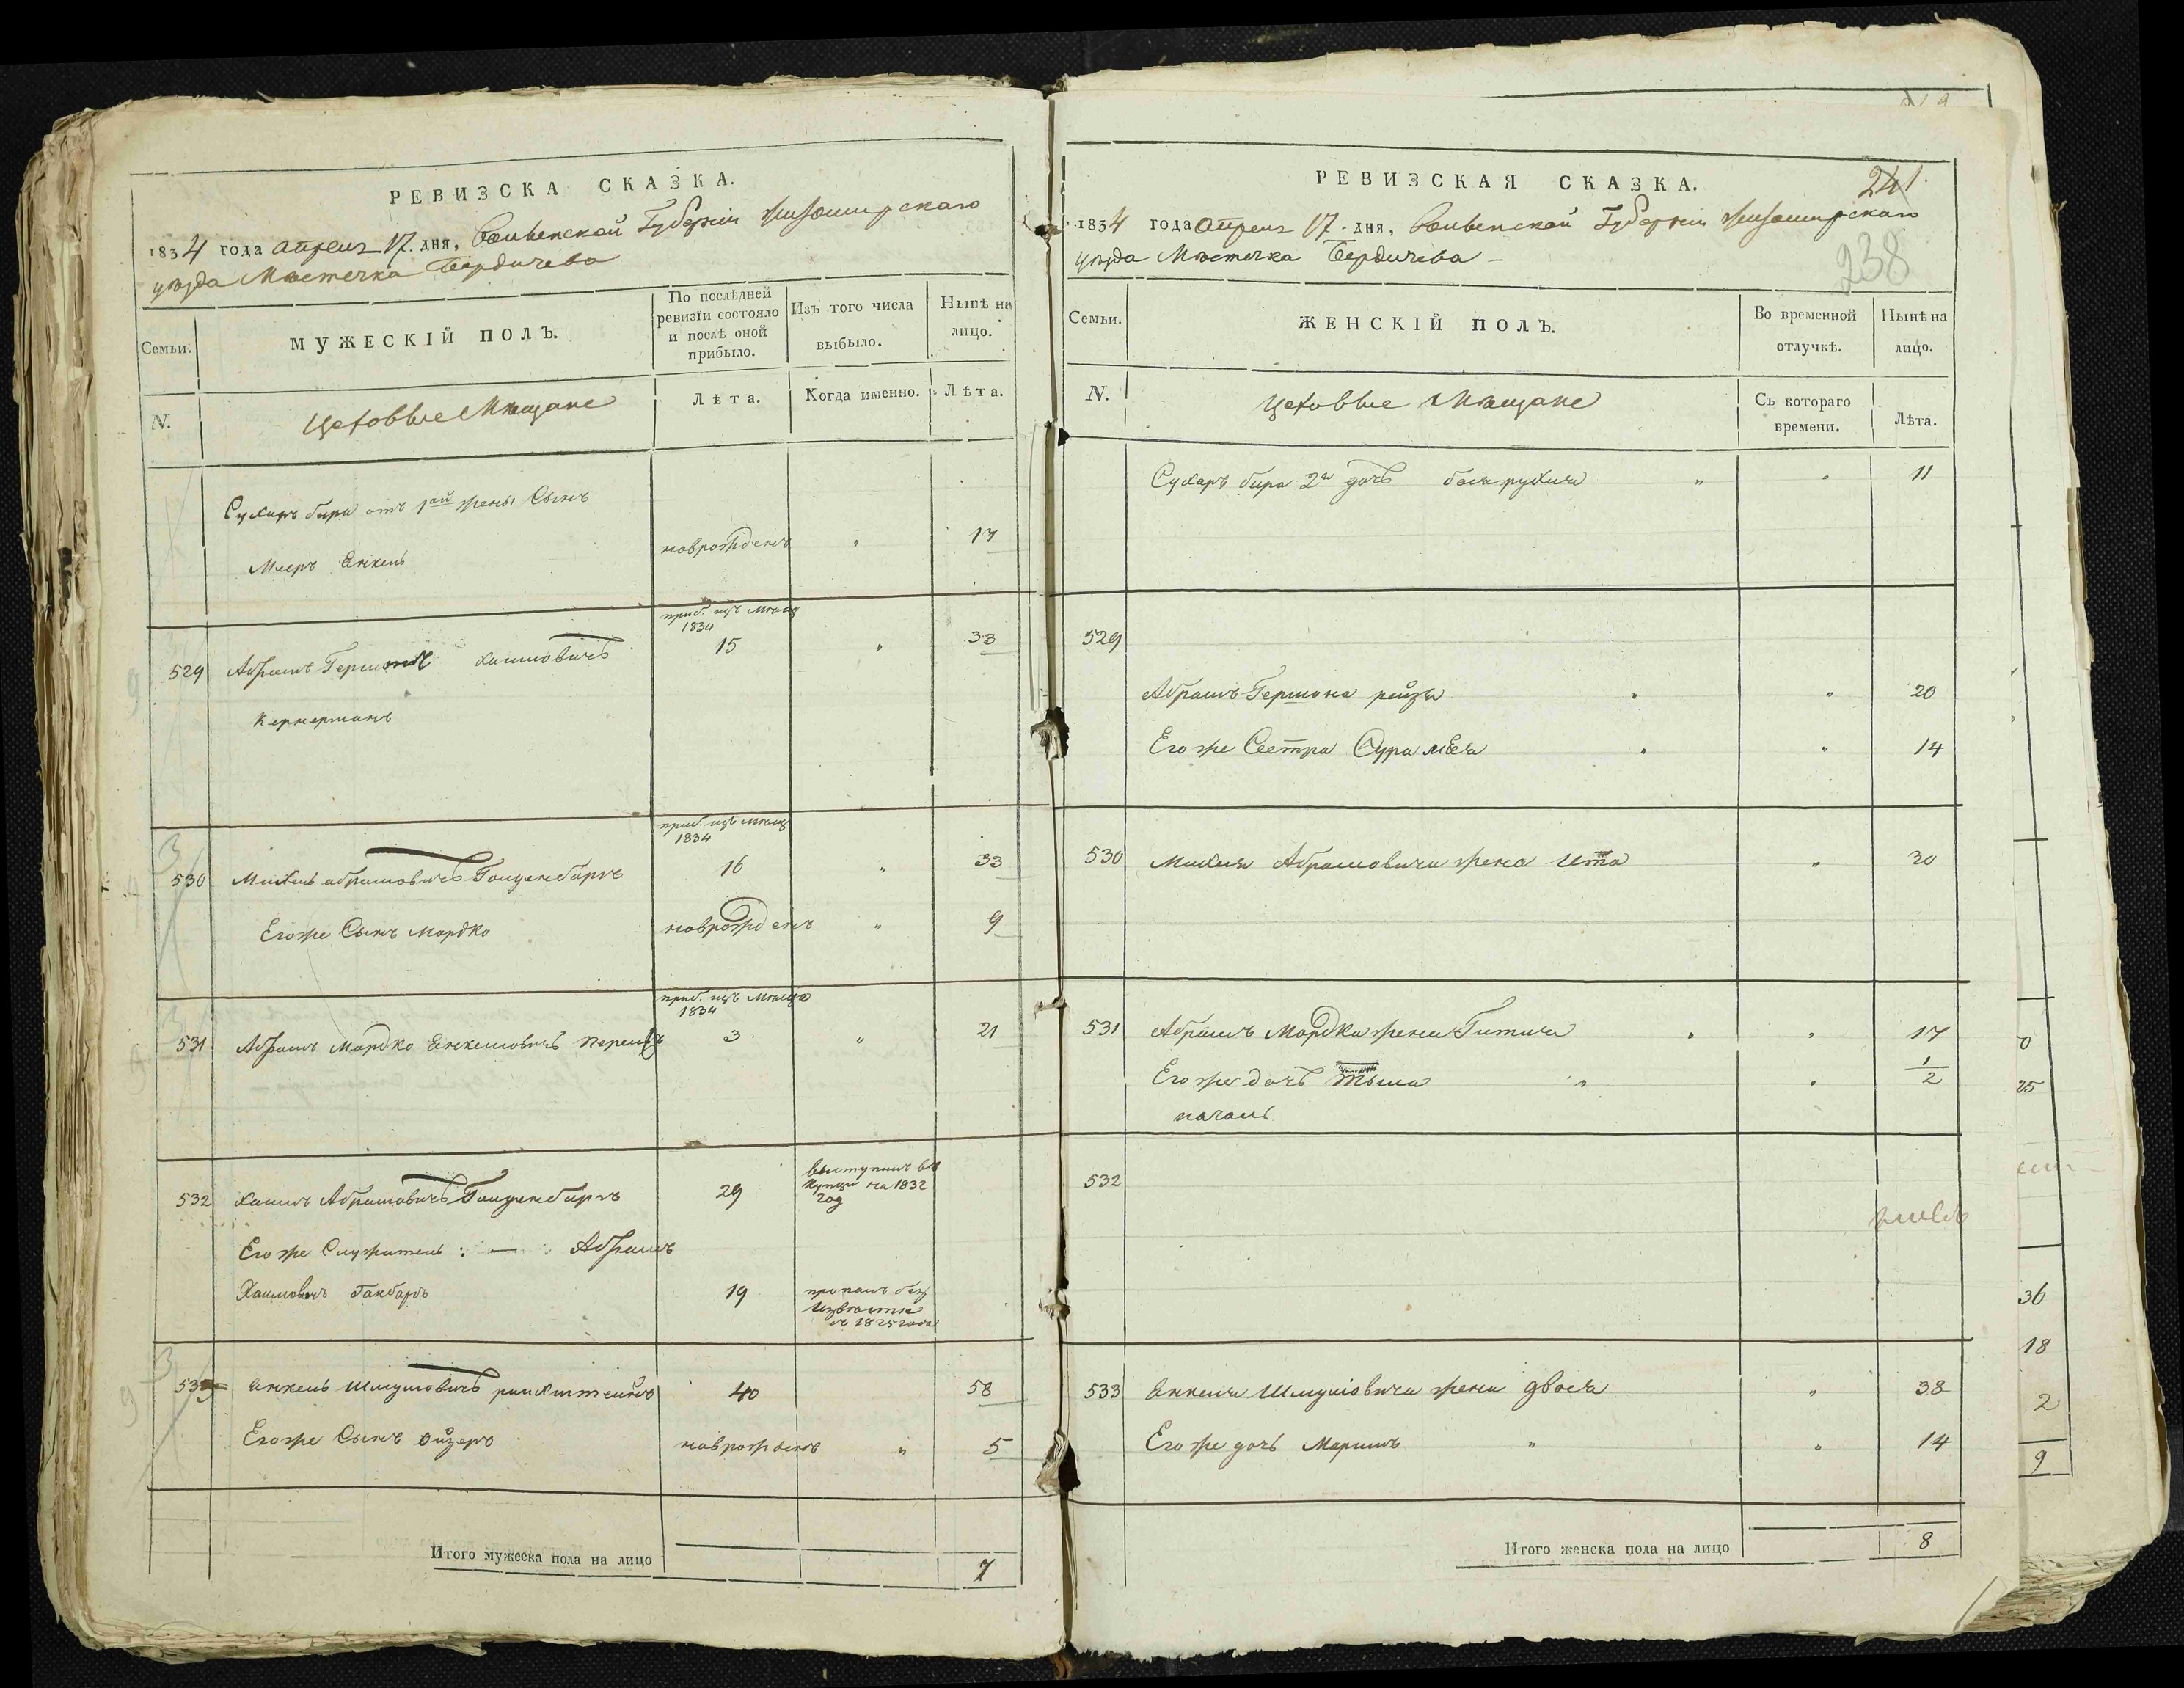 РЕВИЗСКА СКАЗКА.
1834 года апреля 17. дня, Волынской Губерніи Житомирскаго
уѣзда Мѣстечка Бердичева
Семьи.
МУЖЕСКІЙ ПОЛЪ.
По послѣдней ревизіи состояло и послѣ оной прибыло.
Изъ того числа выбыло.
Нынѣ на лицо.
N.
Цеховые Мещане
Лѣта.
Когда именно.
Лѣта.
Сухаръ бира отъ 1ой жены Сынъ
Мееръ Янкель новорожденъ " 17
приб. изъ мѣщ
1834
529 Абрамъ Гершонъ Хаимовичъ 15 " 33
Кернерманъ
приб. изъ мѣщ
1834
530 Михель Абрамовичъ Голденбаръ 16 " 33
Егоже Сынъ Мордко новорожденъ " 9
приб. изъ мѣща
1834
531 Абрамъ Мордко Янкелювичъ 3 " 21
532 Хаимъ Абрамовичъ 29 выступилъ въ
купцы на 1832
год
Егоже Служитель : — Абрамъ
Хаимовичъ 19 пропалъ безъ
извѣстно
съ 1825 года
533 Янкель Шмулювичъ 40 58
Егоже Сынъ новорожденъ " 5
Итого мужеска пола на лицо 7
РЕВИЗСКАЯ СКАЗКА.
241
1834 года апреля 17. дня, Волынской Губерніи Житомирскаго
уѣзда Мѣстечка Бердичева –
238
Семьи.
ЖЕНСКІЙ ПОЛЪ.
Во временной отлучкѣ.
Нынѣ на лицо.
N.
Цеховые Мещане
Съ котораго времени.
Лѣта.
Сухаръ бира 2я дочь бася рухля " " 11
529
Абрамъ Гершона рейзя " " 20
Егоже Сестра Сура " " 14
530 Михеля Абрамовича жена Ита " 30
531 Абрамъ Мордка жена Гитля " " 17
Егоже дочь " " 1/2
532
533 Янкеля Шмулювича жена двося " 38
Егоже дочь Маримъ " " 14
Итого женска пола на лицо 8
25
36
18
2
9